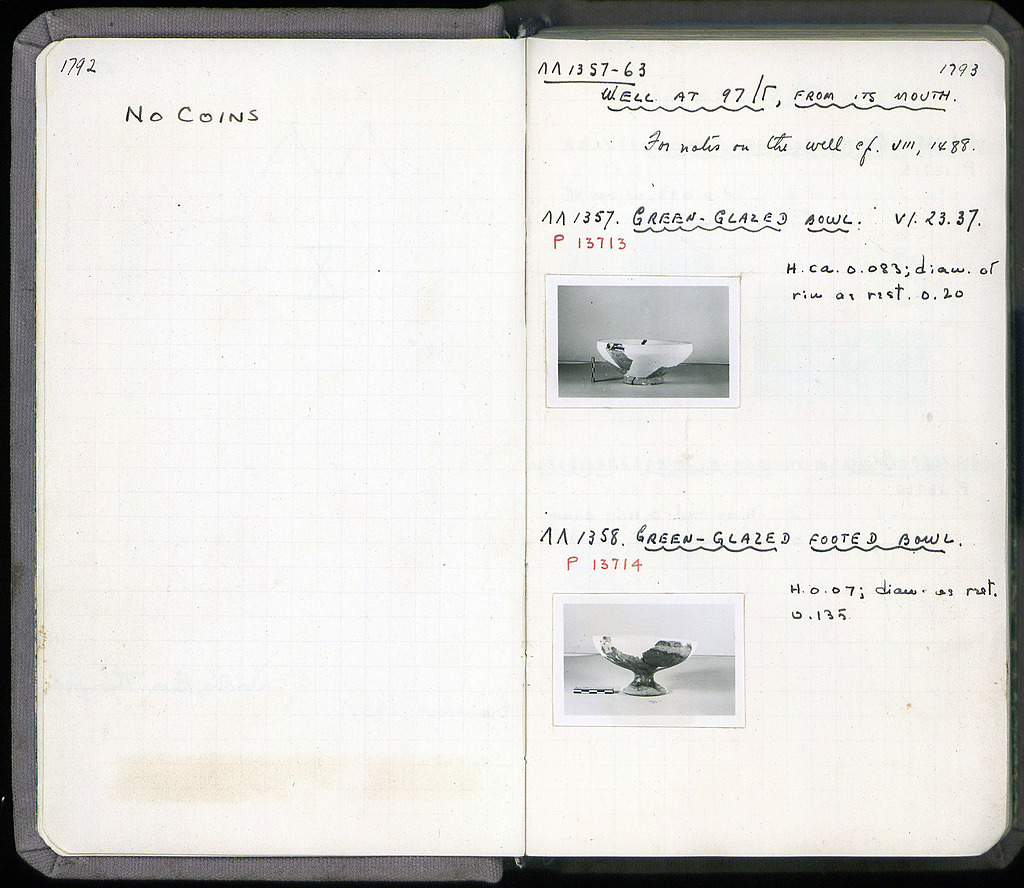 1792
NO COINS
ΛΛ 1357-63
1793
WELL AT 97/Γ, FROM ITS MOUTH.
For notes on the well cf. VIII, 1488.
ΛΛ 1357. GREEN-GLAZED BOWL. VI. 23.37.
P 13713
H. ca. 0.083; diam. of
rim as rest. 0.20
ΛΛ 1358. GREEN-GLAZED FOOTED BOWL.
P 13714
H. 0.07; diam. as rest.
0.135